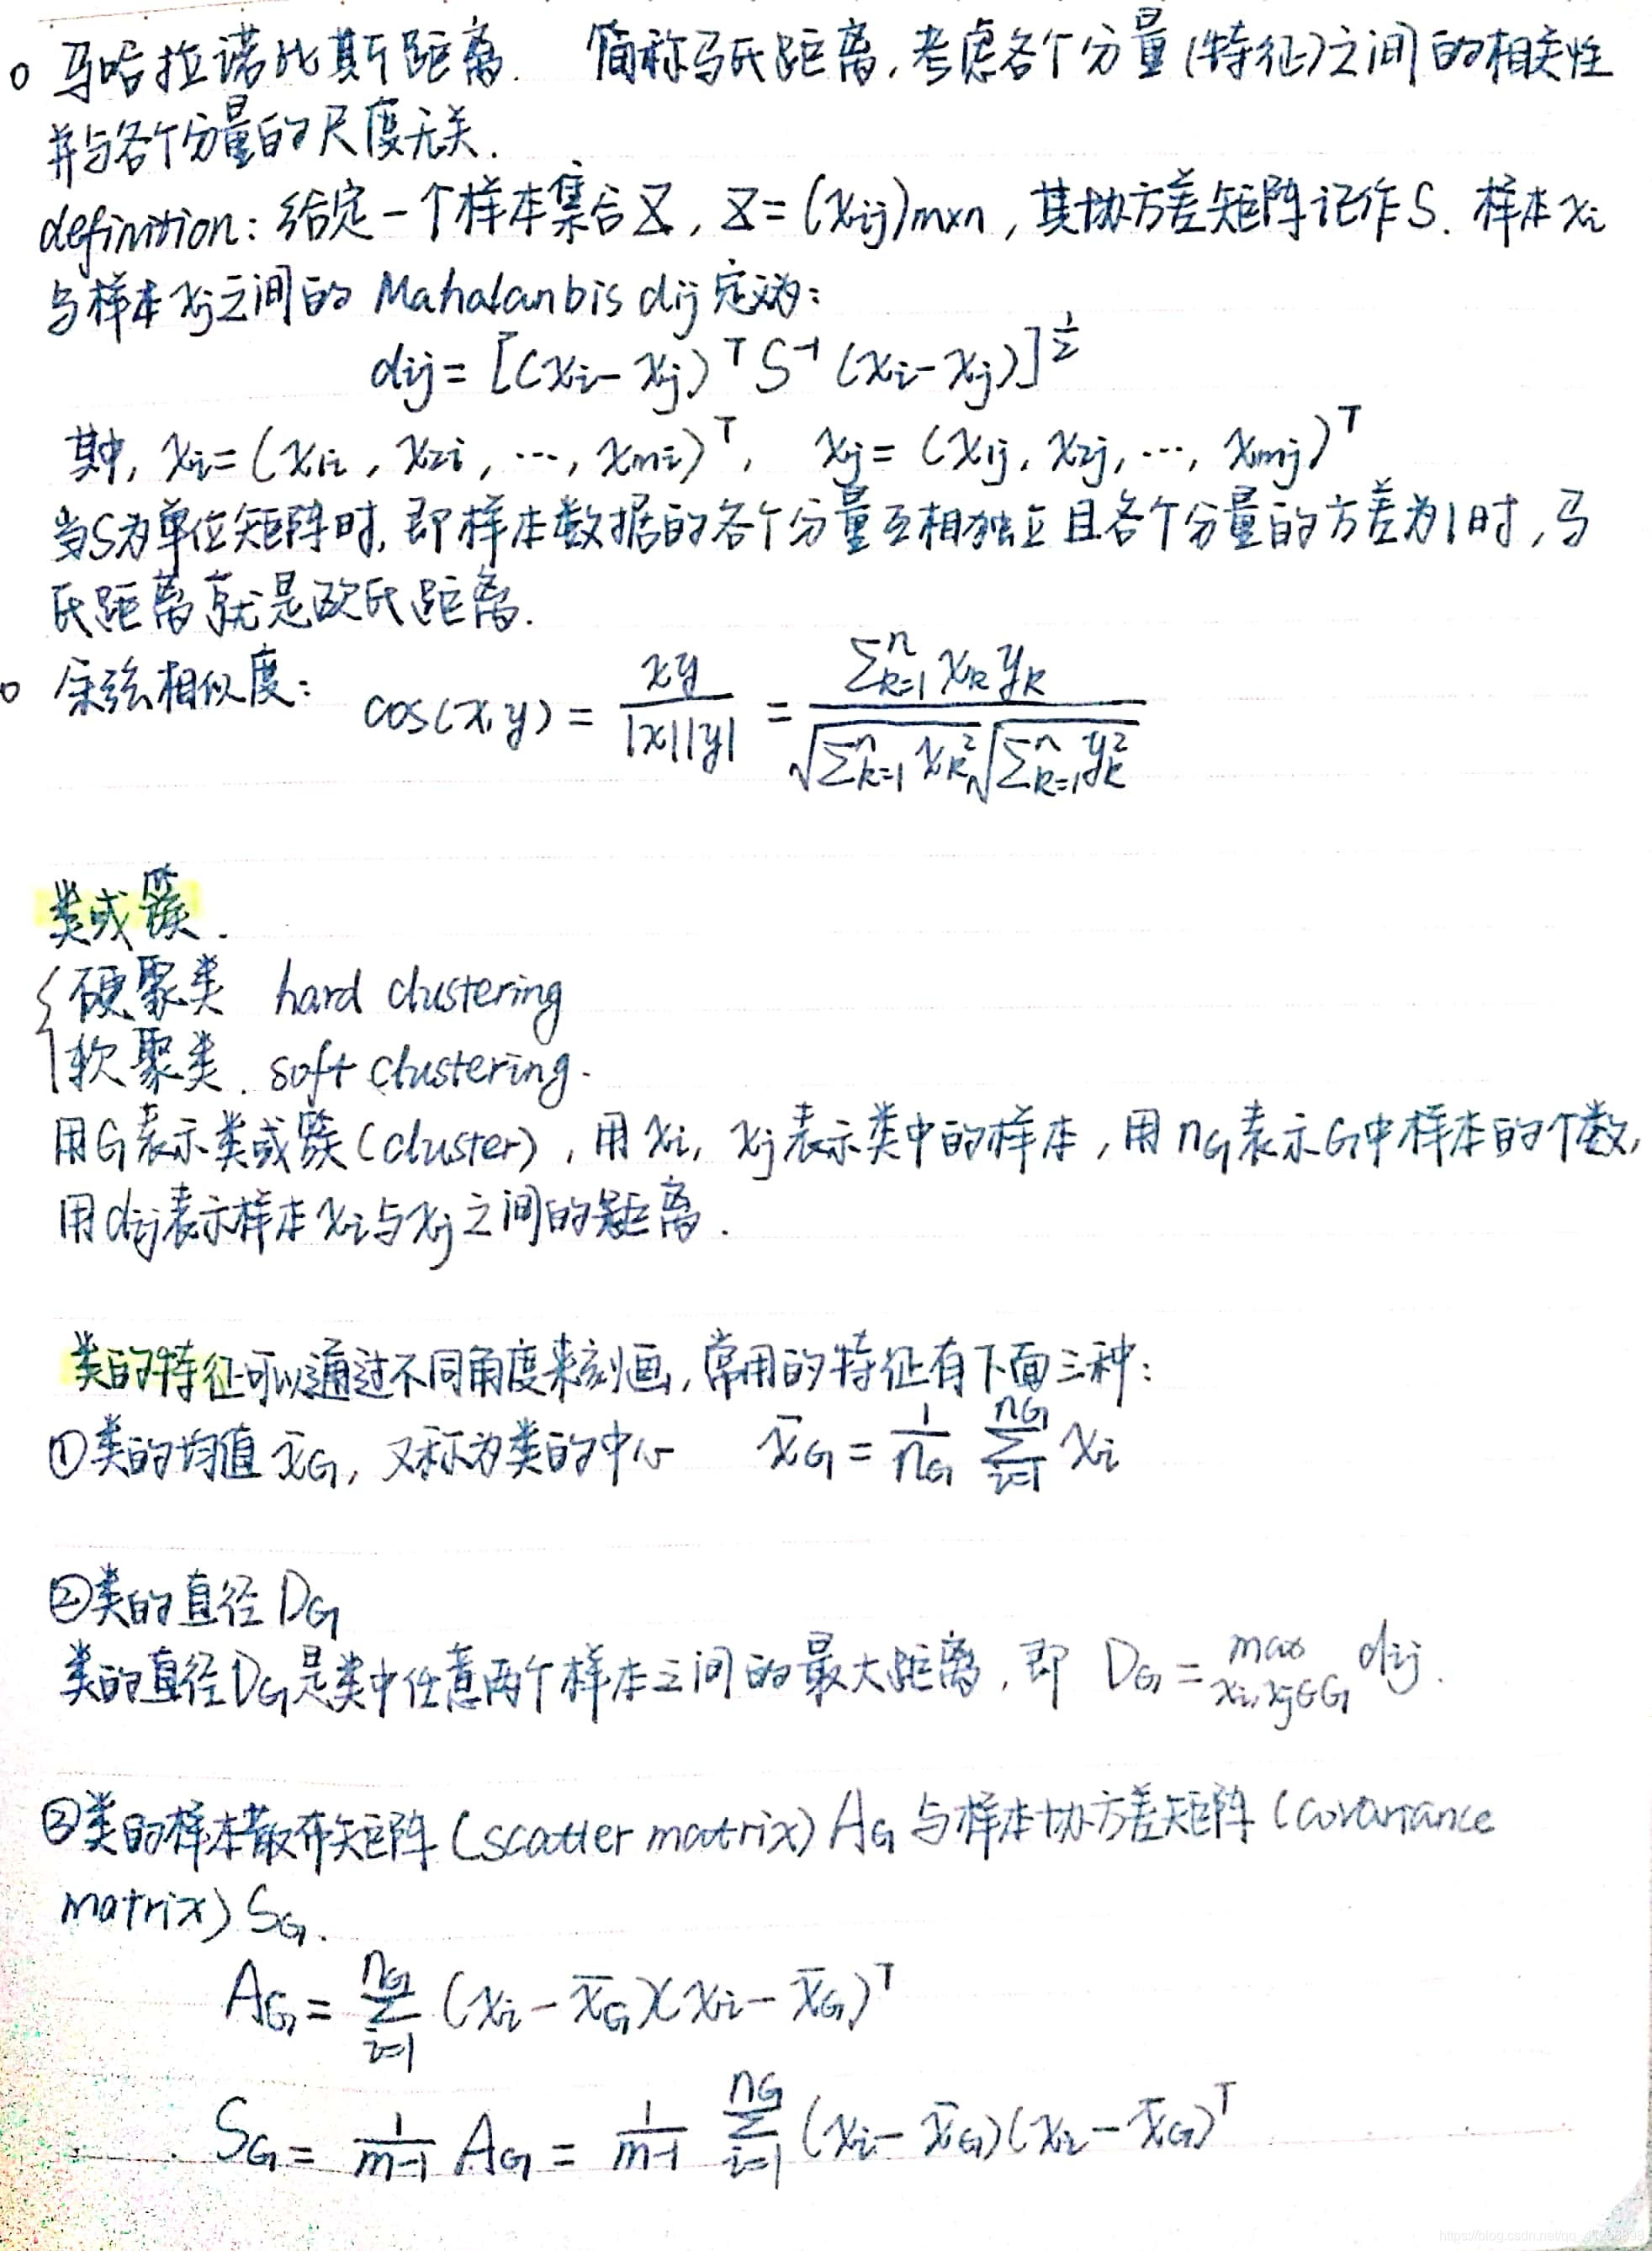 o 马哈拉诺比斯距离. 简称马氏距离,考虑各个分量(特征)之间的相关性
并与各个分量的尺度无关.
definition: 给定一个样本集合X, X=(xij)m×n, 其协方差矩阵记作S. 样本xi
与样本xj之间的 Mahalanbis dij 定义为:
dij = [(xi - xj)ᵀ S⁻¹ (xi - xj)]^½
其中, xi = (x1i, x2i, …, xmi)ᵀ, xj = (x1j, x2j, …, xmj)ᵀ
当S为单位矩阵时,即样本数据的各个分量互相独立且各个分量的方差为1时,马
氏距离就是欧氏距离.
o 余弦相似度: cos(x,y) = xy / |x||y| = Σⁿk=1 xk yk / √(Σⁿk=1 xk²) √(Σⁿk=1 yk²)
类或簇.
{硬聚类 hard clustering
软聚类. soft clustering.
用G表示类或簇(cluster), 用xi, xj表示类中的样本, 用nG表示G中样本的个数,
用dij表示样本xi与xj之间的距离.
类的特征可以通过不同角度来刻画,常用的特征有下面三种:
①类的均值 x̄G, 又称为类的中心 x̄G = 1/nG Σ(i=1→nG) xi
②类的直径 DG
类的直径DG是类中任意两个样本之间的最大距离, 即 DG = max xi,xj∈G dij.
③类的样本散布矩阵 (scatter matrix) AG 与样本协方差矩阵 (covariance
matrix) SG.
AG = Σ(i=1→nG) (xi - x̄G)(xi - x̄G)ᵀ
SG = 1/(m-1) AG = 1/(m-1) Σ(i=1→nG) (xi - x̄G)(xi - x̄G)ᵀ